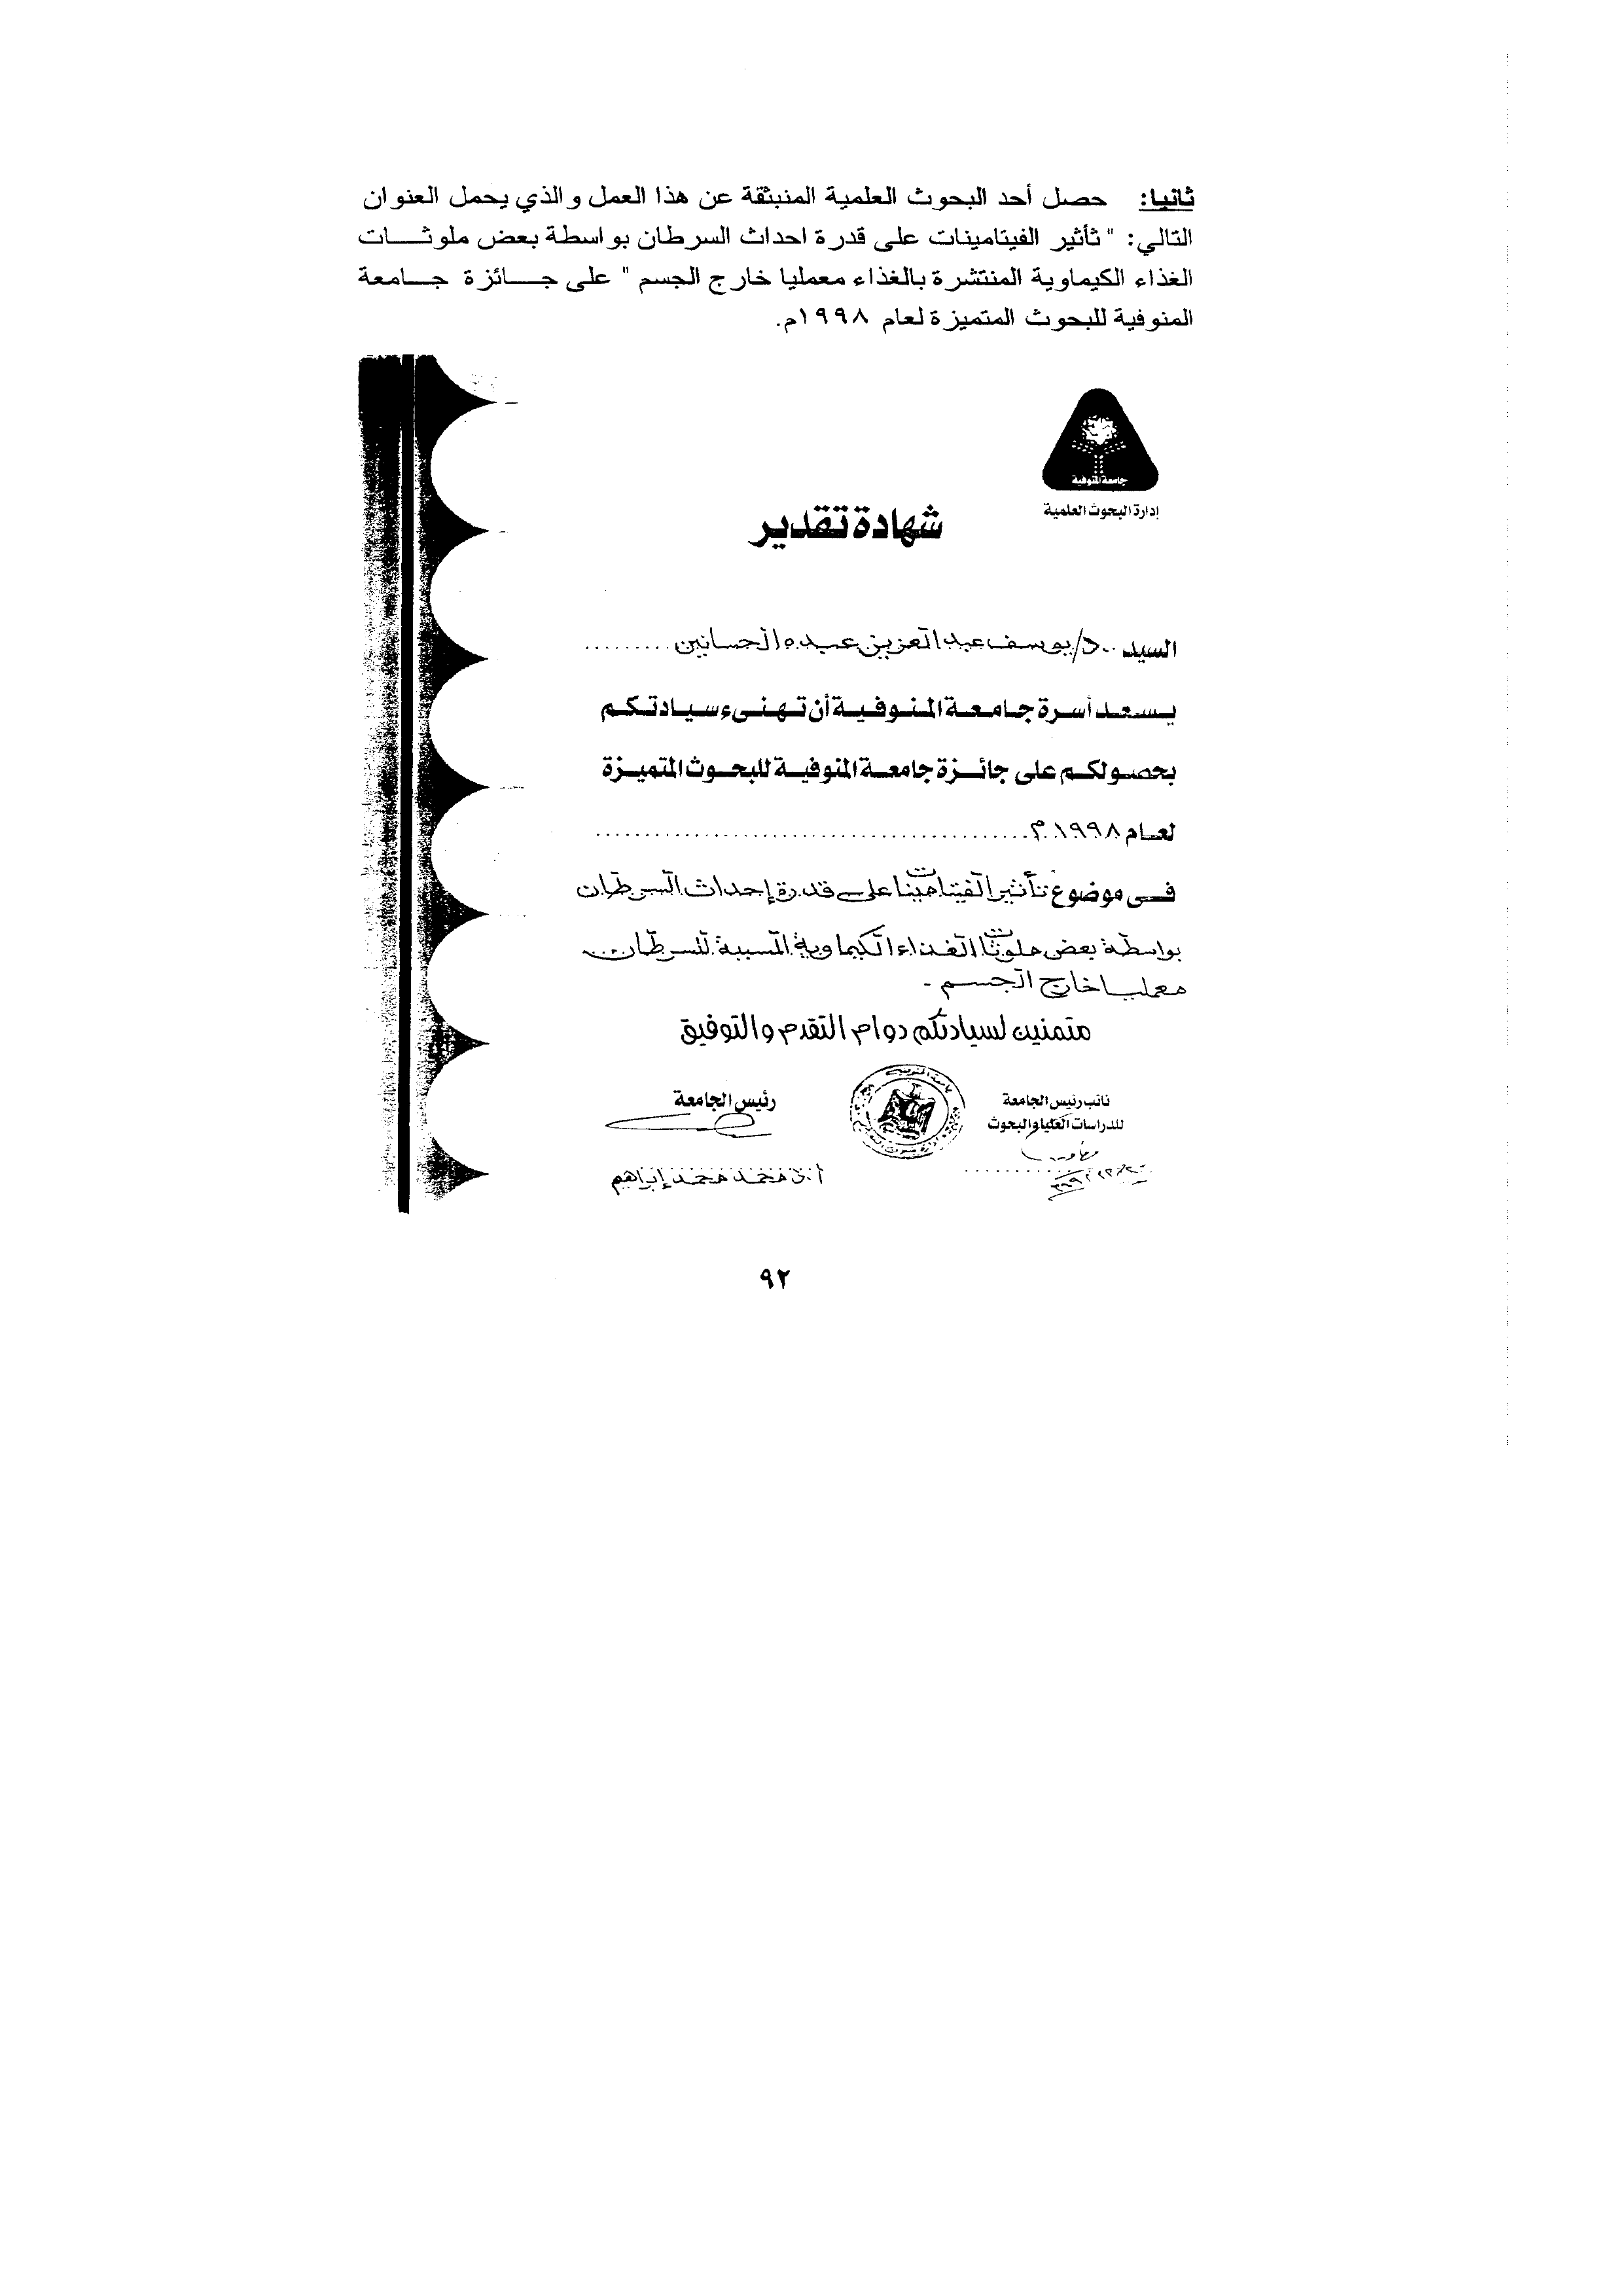 ثانيا: حصل أحد البحوث العلمية المنبثقة عن هذا العمل والذي يحمل العنوان
التالي: " تأثير الفيتامينات على قدرة احداث السرطان بواسطة بعض ملوثــات
الغذاء الكيماوية المنتشرة بالغذاء معمليا خارج الجسم " على جــائزة جــامعة
المنوفية للبحوث المتميزة لعام ١٩٩٨م.
جامعة المنوفية
إدارة البحوث العلمية
شهادة تقدير
السيد .. د/ يوسف عبد العزيز عبده الحسانين ..........
يسعد أسرة جامعة المنوفية أن تهنىء سيادتكم
بحصولكم على جائزة جامعة المنوفية للبحوث المتميزة
لعام ١٩٩٨ م
فى موضوع تأثير الفيتامينات على قدرة إحداث السرطان
بواسطة بعض ملوثات الغذاء الكيماوية المسببة للسرطان ..
معمليا خارج الجسم -
متمنين لسيادتكم دوام التقدم والتوفيق
نائب رئيس الجامعة
للدراسات العليا والبحوث
رئيس الجامعة
أ.د. محمد محمد إبراهيم
٩٢